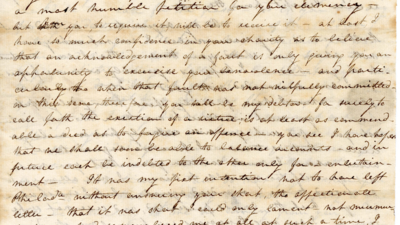 a most humble petition for your clemency –
but you to excuse it will be to secure it – at least I
have so much confidence in your charity as to believe
that an acknowledgement of a fault is only giving you an
opportunity to exercise your benevolence – and parti-
cularly so when that fault was not wilfully committed –
in this same, therefore you will be my debtor for surely to
call forth the exertion of a virtue is at least as commend
able a deed as to forgive an offence – you see I have hopes
that we shall soon be able to balance accounts – and in
future each be indebted to the other only for entertain-
ment – It was my first intention not to have left
Philadª without answering your short, tho affectionate
letter – that it was short I could only lament – not murmur
me at all at such a time, I